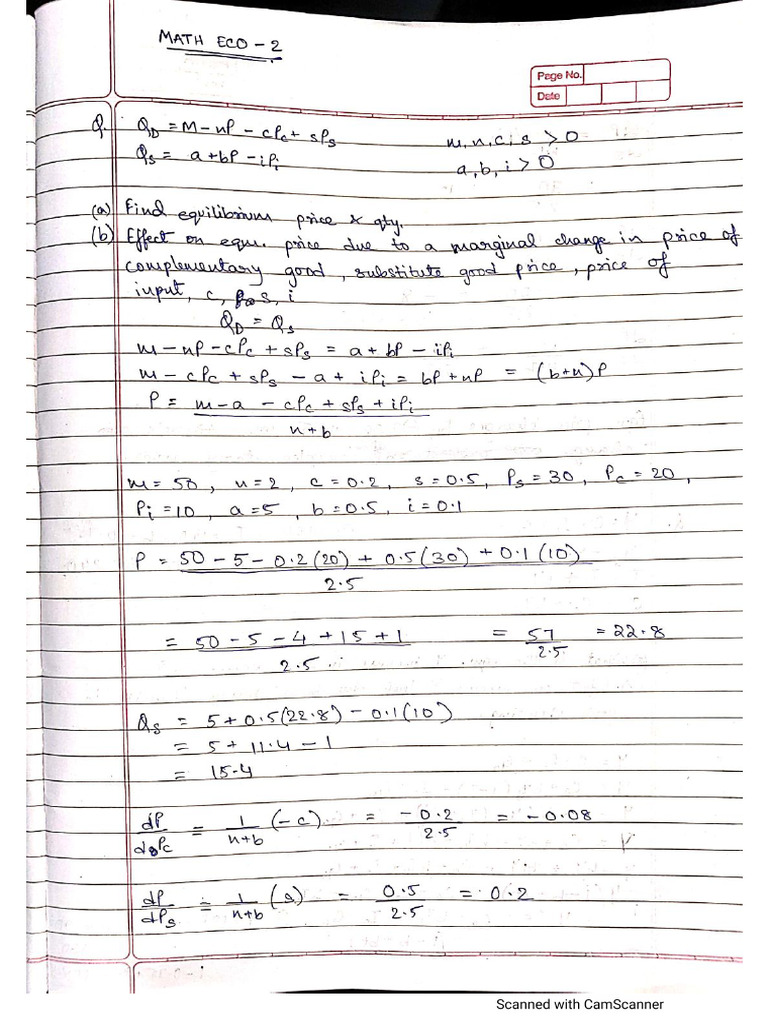 MATH ECO - 2
Page No.
Date
Q. Q_D = M - nP - cPc + sPs    m, n, c, s > 0
Q_S = a + bP - iPi    a, b, i > 0
(a) Find equilibrium price & qty.
(b) Effect on equ. price due to a marginal change in price of
complementary good, substitute good price, price of
input, c, s, i
Q_D = Q_S
m - nP - cPc + sPs = a + bP - iPi
m - cPc + sPs - a + iPi = bP + nP = (b+n)P
P = m - a - cPc + sPs + iPi
n + b
m = 50, n = 2, c = 0.2, s = 0.5, Ps = 30, Pc = 20,
Pi = 10, a = 5, b = 0.5, i = 0.1
P = 50 - 5 - 0.2(20) + 0.5(30) + 0.1(10)
2.5
= 50 - 5 - 4 + 15 + 1 = 57 = 22.8
2.5 2.5
Q_S = 5 + 0.5(22.8) - 0.1(10)
= 5 + 11.4 - 1
= 15.4
dP = 1 (-c) = -0.2 = -0.08
dPc n+b 2.5
dP = 1 (s) = 0.5 = 0.2
dPs n+b 2.5
Scanned with CamScanner